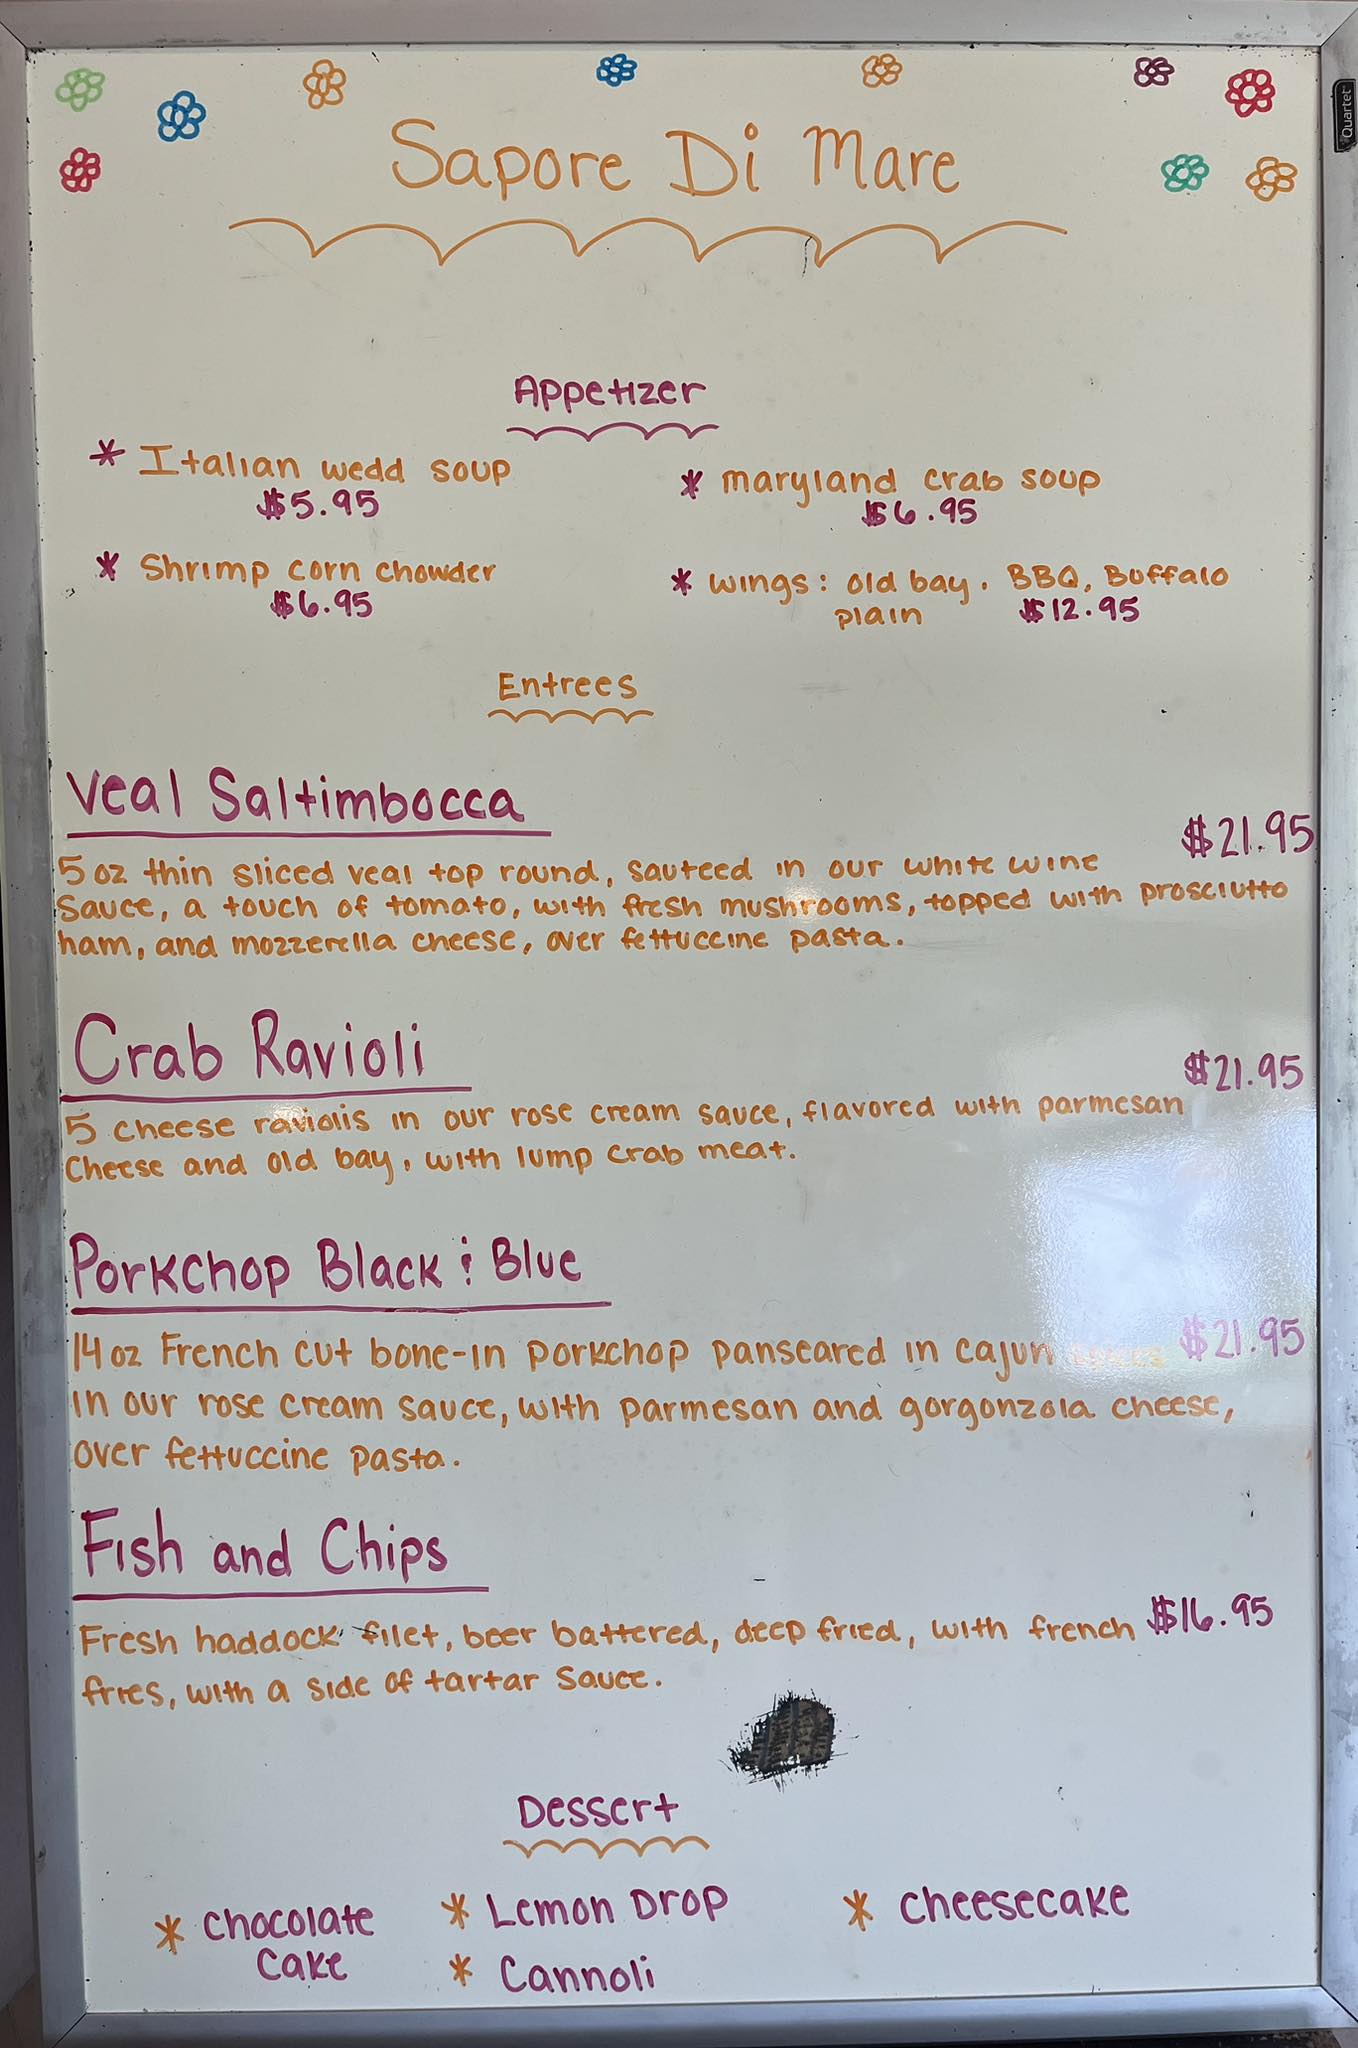 Quartet
Sapore Di Mare
Appetizer
* Italian wedd soup
$5.95
* maryland crab soup
$6.95
* Shrimp corn chowder
$6.95
* wings: old bay, BBQ, Buffalo
plain $12.95
Entrees
Veal Saltimbocca
$21.95
5 oz thin sliced veal top round, sauteed in our white wine
sauce, a touch of tomato, with fresh mushrooms, topped with prosciutto
ham, and mozzerella cheese, over fettuccine pasta.
Crab Ravioli
$21.95
5 cheese raviolis in our rose cream sauce, flavored with parmesan
Cheese and old bay, with lump crab meat.
Porkchop Black & Blue
14 oz French cut bone-in porkchop panseared in cajun spices $21.95
in our rose cream sauce, with parmesan and gorgonzola cheese,
over fettuccine pasta.
Fish and Chips
Fresh haddock filet, beer battered, deep fried, with french $16.95
fries, with a side of tartar sauce.
Dessert
* Chocolate
Cake
* Lemon Drop
* Cannoli
* Cheesecake